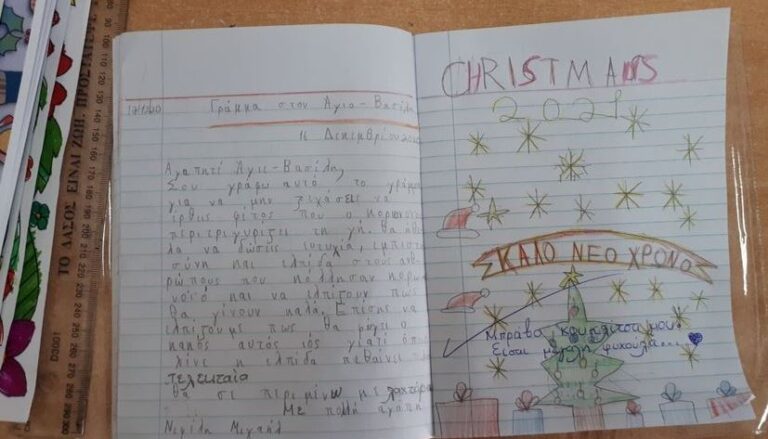 17/12/20
Γράμμα στον Άγιο-Βασίλη
16 Δεκεμβρίου
Αγαπητέ Άγιε-Βασίλη,
Σου γράφω αυτό το γράμμα
για να μην ξεχάσεις να
έρθεις φέτος που ο κορωνοϊός
περιτριγυρίζει τη γή. Θα ήθε
λα να δώσεις ευτυχία, εμπιστο
σύνη και ελπίδα στους ανθ
ρώπους που κόλλησαν κορω
νοϊό και να ελπίζουν πως
θα γίνουν καλά. Επίσης να
ελπίζουμε πως θα φύγει ο
κακός αυτός ιός γιατί όπως
λένε η ελπίδα πεθαίνει
τελευταία
Θα σε περιμένω με λαχτάρα
Με πολλή αγάπη
CHRISTMAS
2021
ΚΑΛΟ ΝΕΟ ΧΡΟΝΟ
Μπράβο κουκλίτσα μου!
Είσαι μεγάλη ψυχούλα...
ΤΟ ΔΑΣΟΣ ΕΙΝΑΙ ΖΩΗ. ΠΡΟΣΤΑΤΕΨ